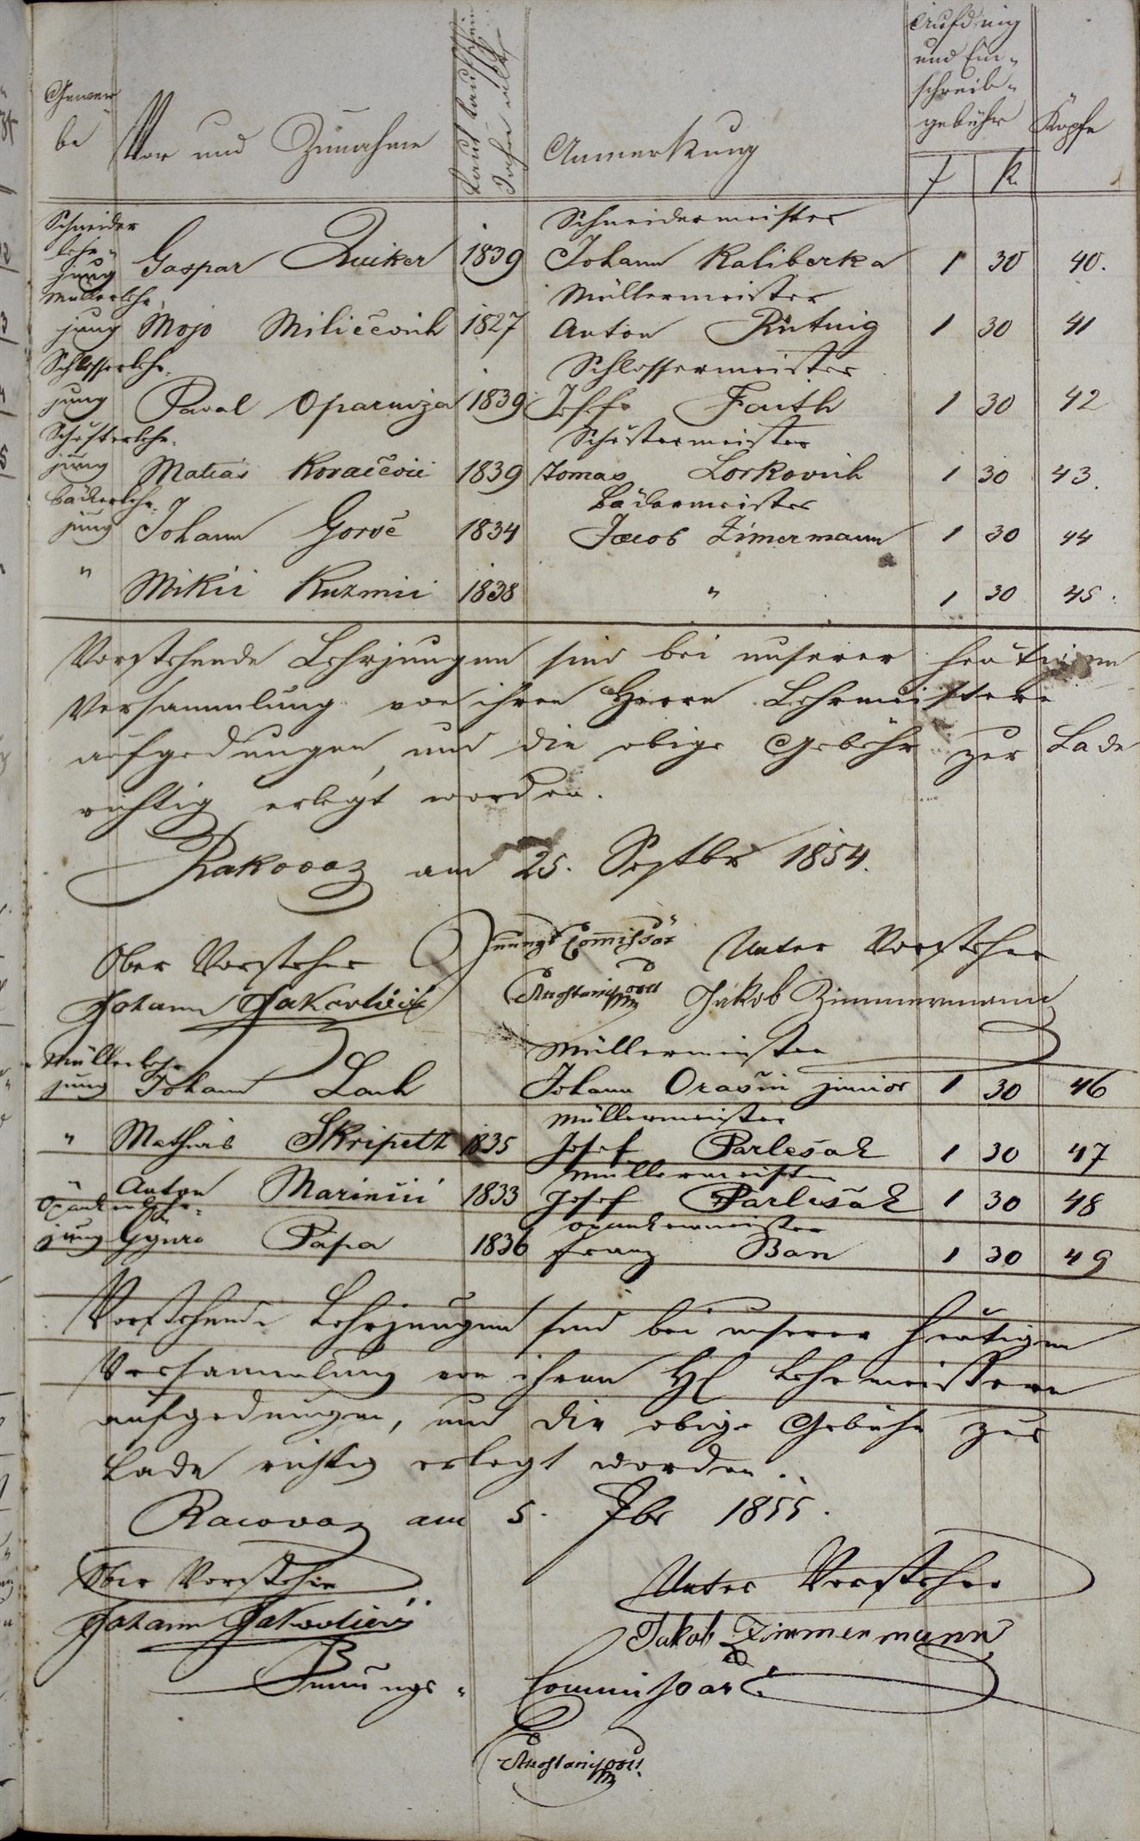 Gewer
be
Vor und Zunahme
Laut Taufschein
Jahre alt
Anmerkung
Aufding
und Ein-
schreib-
gebühr
Köpfe
f k
Schneider
lehr
jung Gaspar Zuiker 1839 Schneidermeister
Johann Kaliberka 1 30 40.
Müllerlehr
jung Mojo Miličevich 1827 Müllermeister
Anton 1 30 41
Schlosserlehr
jung Paval Oparniza 1839 Schlossermeister
Faith 1 30 42
Schusterlehr
jung Matias Kovačević 1839 Schustermeister
Tomas Lorkovich 1 30 43.
Bäckerlehr
jung Johann Gorše 1834 Bäckermeister
Jacob Zimermann 1 30 44
" Mikii Kuzmii 1838 " 1 30 45.
Vorstehende Lehrjungen sind bei unserer heutigen
Versammlung von ihren Herrn Lehrmeistern
aufgedungen, und die obige Gebühr zur Lade
richtig erlegt worden.
Rakovaz am 25. Septbr 1854.
Ober Vorsteher Innungs Commissär Unter Vorsteher
Johann Jakovlieić Jakob Zimmermann
Müllerlehr
jung Johann Lach Müllermeister
Johann Oravši junior 1 30 46
" Mathias Skripeth 1835 Müllermeister
Josef Parlešak 1 30 47
" Anton Marincii 1833 Müllermeister
Josef Parlešak 1 30 48
Opankerlehr-
jung Gyuro Papa 1836 Opankermeister
Franz Ban 1 30 49
Vorstehende Lehrjungen sind bei unserer heutigen
Versammlung von ihren H Lehrmeistern
aufgedungen, und die obige Gebühr zur
Lade richtig erlegt worden.
Racovaz am 5. 7br 1855.
Ober Vorsteher Unter Vorsteher
Johann Jakovlieić Jakob Zimmermann
Innungs- Commissoär